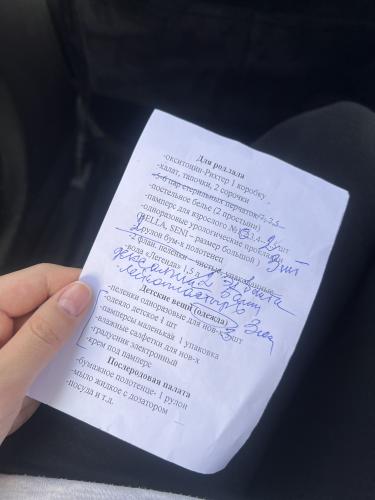 Для род.зала
-окситоцин-Рихтер 1 коробку
-халат, тапочки, 2 сорочки
-5-6 пар стерильных перчаток 7; 7,5
-постельное белье (2 простыни)
-памперс для взрослого №
-одноразовые урологические прокладки
BELLA, SENI – размер большой ) 3шт
2 рулон бум-х полотенец
-2 флан. пеленки чистые, упакованные
-вода «Легенда» 1,5 л
Детские вещи (одежда)
-пеленки одноразовые для нов-х 5шт
-одеяло детское 1 шт
-памперсы маленькая 1 упаковка
-влажные салфетки для нов-х
-градусник электронный
-крем под памперс
Послеродовая палата
-бумажное полотенце- 1 рулон
-мыло жидкое с дозатором
-посуда и т.д.